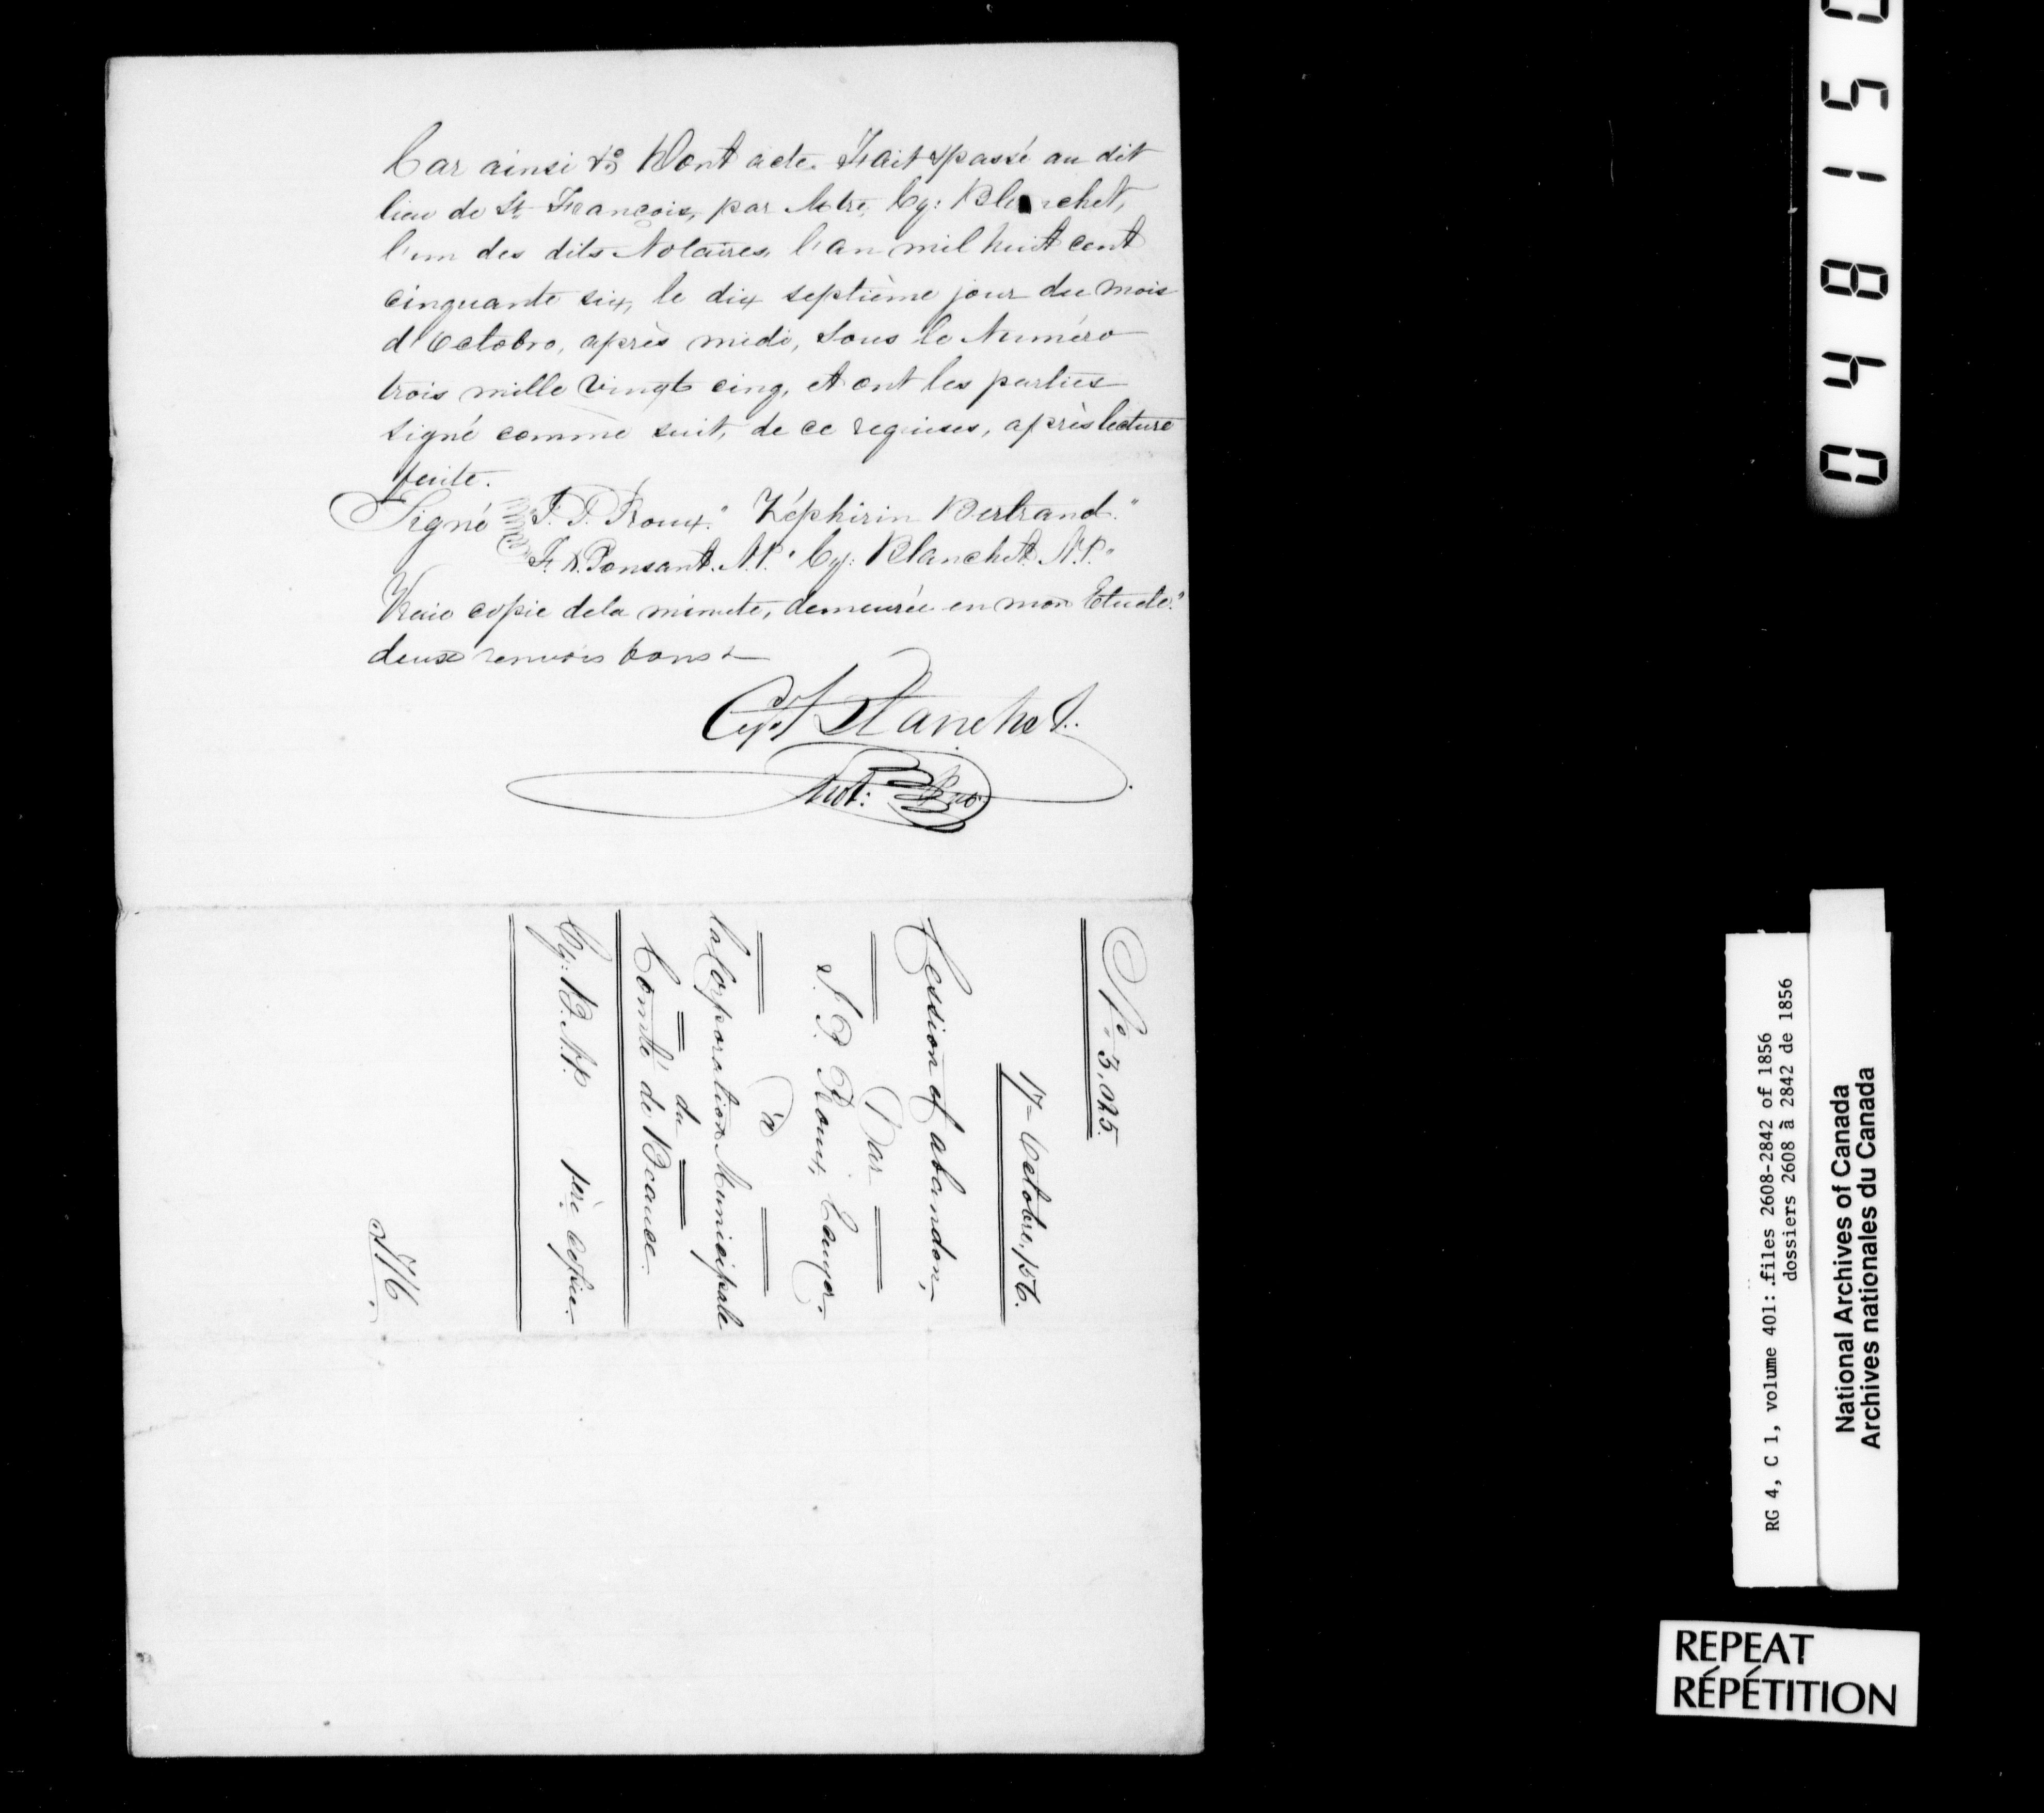 Car ainsi &c Dont acte. Fait & passé au dit
lieu de St François, par Mtre Cy: Blanchet,
l'un des dits Notaires, l'an mil huit cent
cinquante six, le dix septième jour du mois
d'Octobre, après midi, sous le Numéro
trois mille vingt cinq, et ont les parties
signé comme suit, de ce requises, après lecture
faite.
Signé "J. P. Proulx." "Zéphirin Bertrand."
F. X. Ponsant. N.P. "Cy: Blanchet. N.P."
Vraie copie de la minute, demeurée en mon Etude."
deux renvois bons
Blanchet.
Not: Pub.
No. 3,025.
17 Octobre, /56.
Cession et abandon,
Par
J. P. Proulx, Ecuyer,
à
la Corporation Municipale
du
Comté de Beauce.
Cy: B. N.P. 1ère Copie.
04815
RG 4, C 1, volume 401: files 2608-2842 of 1856
dossiers 2608 à 2842 de 1856
National Archives of Canada
Archives nationales du Canada
REPEAT
RÉPÉTITION